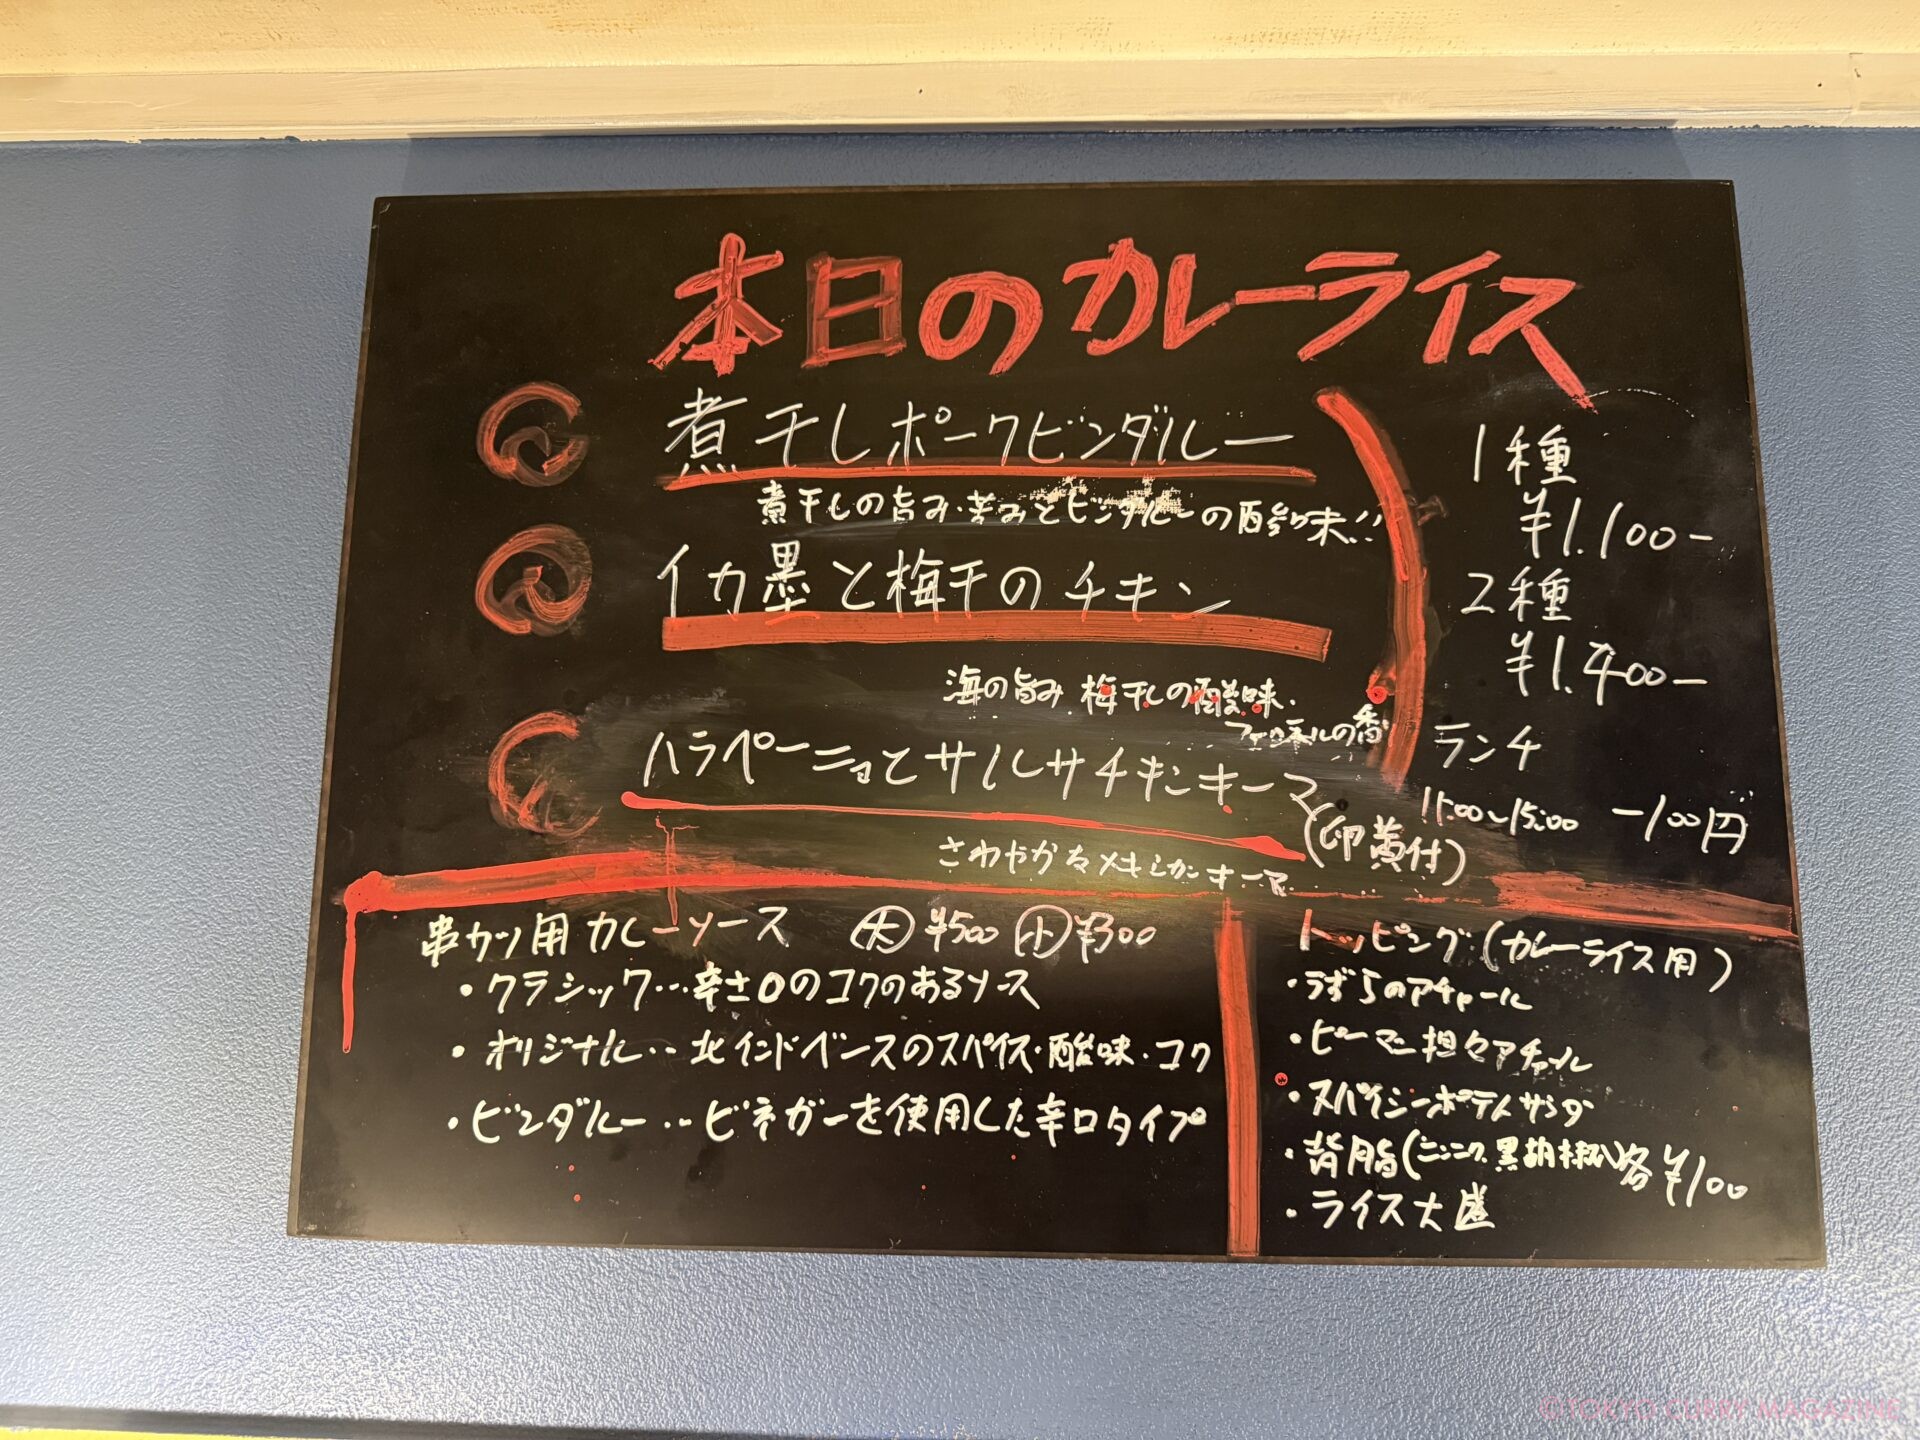 本日のカレーライス
煮干しポークビンダルー
煮干しの旨み・苦みとビンダルーの酸味!!
イカ墨と梅干のチキン
海の旨み 梅干しの酸味.
フェンネルの香
ハラペーニョとサルサチキンキーマ
(卵黄付)
さわやかなメキシカンキーマ
1種
¥1.100-
2種
¥1.400-
ランチ
11:00~15:00 -100円
串カツ用カレーソース 大 ¥500 小 ¥300
・クラシック…辛さ0のコクのあるソース
・オリジナル‥北インドベースのスパイス・酸味・コク
・ビンダルー‥ビネガーを使用した辛口タイプ
トッピング(カレーライス用)
・うずらのアチャール
・ピーマン担々アチャール
・スパイシーポテトサラダ
・背脂(ニンニク、黒胡椒) 各¥100
・ライス大盛
©TOKYO CURRY MAGAZINE